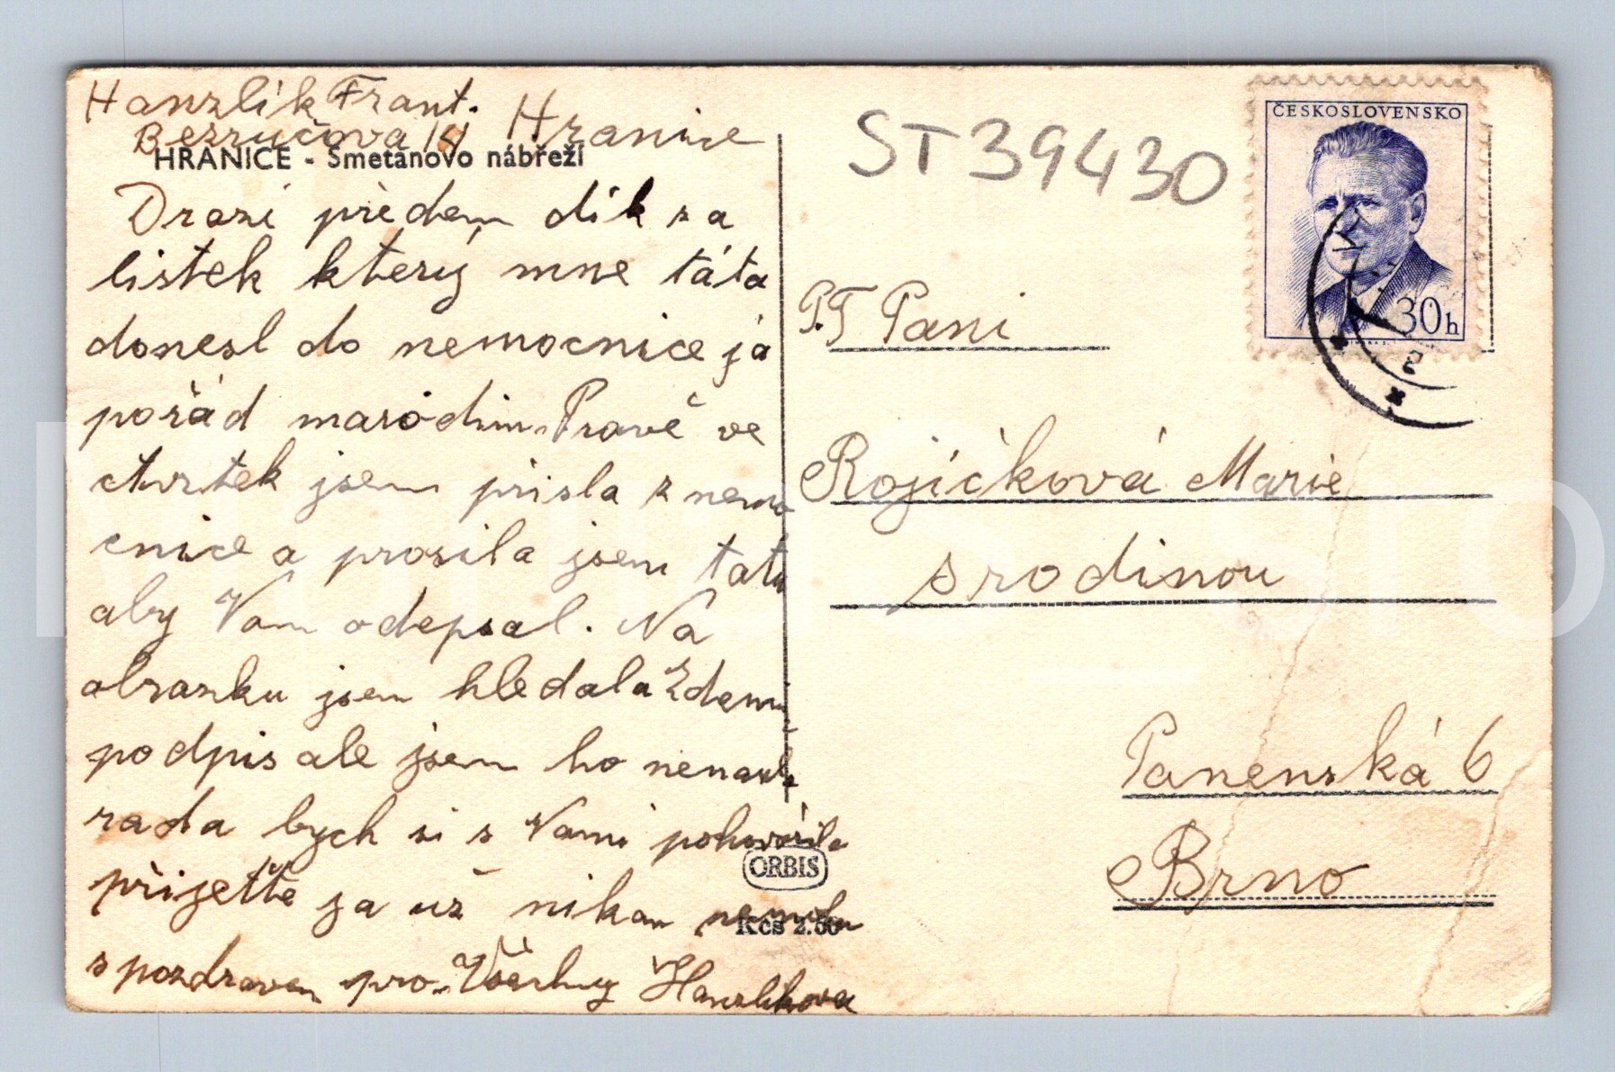 Hanzlík Frant.
Bezručova 14 Hranice
HRANICE - Smetanovo nábřeží
Drazí předem dík za
lístek který mne táta
donesl do nemocnice já
pořád maródim. Pravě ve
čtvrtek jsem přisla z nemo
cnice a prosila jsem tatu
aby Vam odepsal. Na
obrazku jsem hledala Zdeni
podpis ale jsem ho nenašla
rada bych si s Vami pohovořila
přijeďte ja už nikam nemohu
s pozdravem pro Všechny Hanzlikova
ORBIS
Kčs 2.60
ST 39430
ČESKOSLOVENSKO
30h
P.T Pani
Rojíčková Marie
s rodinou
Panenská 6
Brno